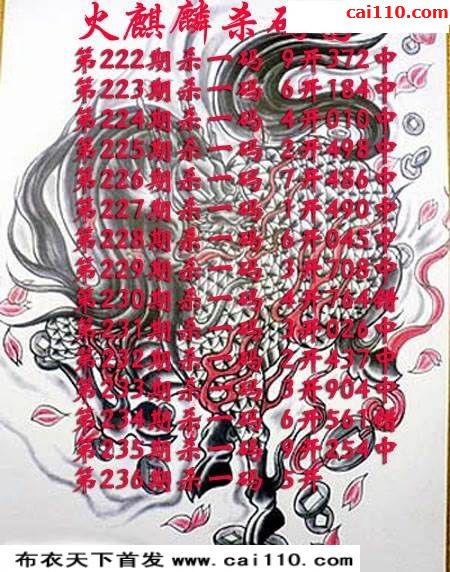 cai110.com
火麒麟杀码
第222期杀一码 9开372中
第223期杀一码 6开184中
第224期杀一码 4开010中
第225期杀一码 2开498中
第226期杀一码 7开486中
第227期杀一码 1开490中
第228期杀一码 6开045中
第229期杀一码 3开708中
第230期杀一码 4开764错
第231期杀一码 开026中
第232期杀一码 2开437中
第233期杀一码 3开904中
第234期杀一码 6开561错
第235期杀一码 9开254中
第236期杀一码 5开
布衣天下首发 www.cai110.com